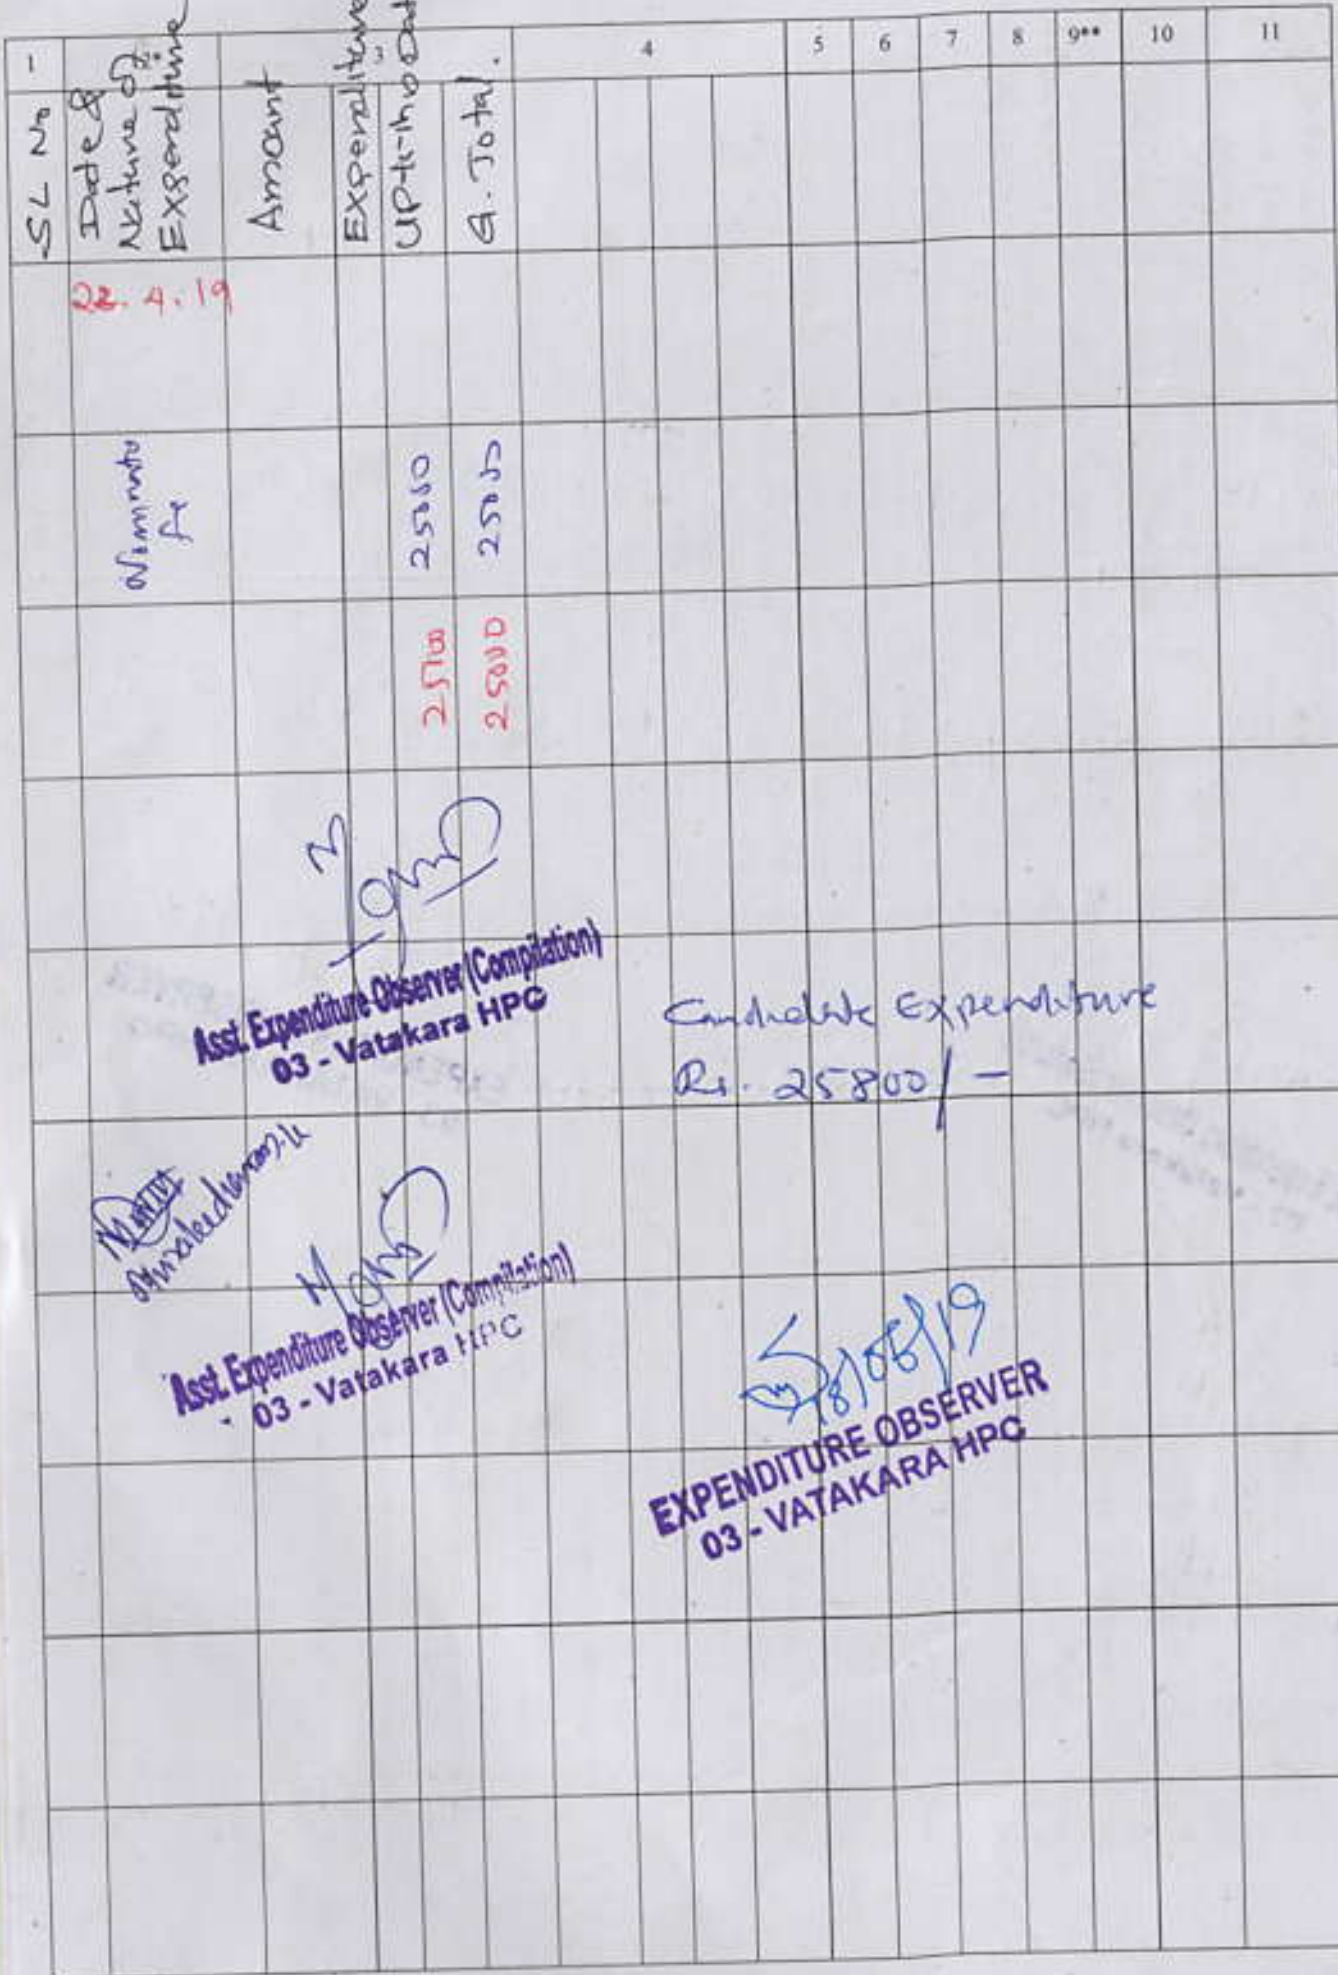 1 2 3 4 5 6 7 8 9** 10 11
SL No
Date &
Nature of
Expenditure
Amount
Expenditure
G. Total.
22. 4. 19
25000
25000
25000
Asst. Expenditure Observer (Compilation)
03 - Vatakara HPC
Candidate Expenditure
Rs. 25800/-
Asst. Expenditure Observer (Compilation)
03 - Vatakara HPC
EXPENDITURE OBSERVER
03 - VATAKARA HPC